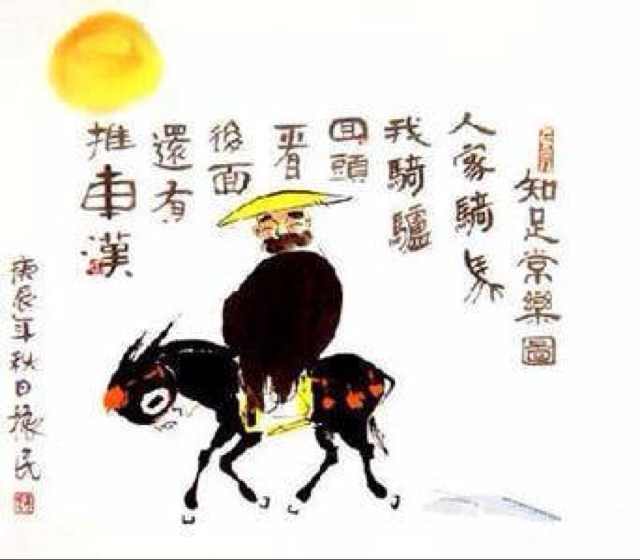 知足常樂圖
人家騎馬
我騎驢
回頭
看
後面
還有
推車漢
庚辰年秋日 民